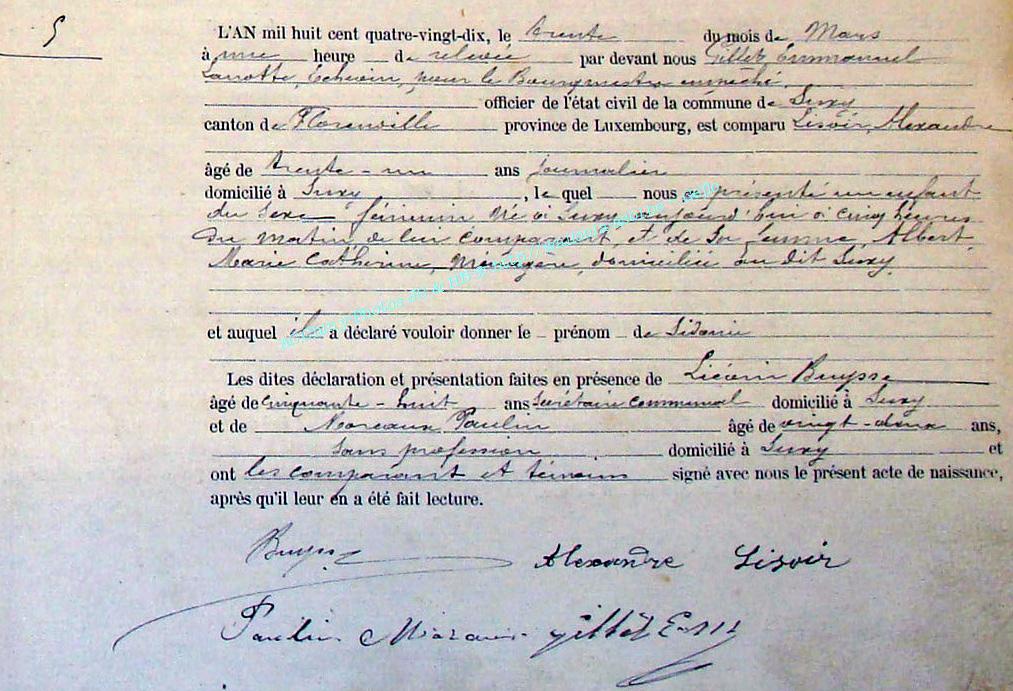 5
L'AN mil huit cent quatre-vingt-dix, le trente du mois de Mars
à une heure de relevée par devant nous Gillet Emmanuel
Echevin, pour le Bourgmestre empêché,
officier de l'état civil de la commune de Suxy
canton de Florenville province de Luxembourg, est comparu Lisoir, Alexandre
âgé de trente-un ans journalier
domicilié à Suxy, le quel nous a présenté un enfant
du sexe féminin né à Suxy aujourd'hui à cinq heures
du matin, de lui comparant, et de sa femme, Albert,
Marie Catherine, Ménagère, domiciliée au dit Suxy
et auquel il a déclaré vouloir donner le prénom de Sidonie
Les dites déclaration et présentation faites en présence de Buysse
âgé de cinquante-huit ans Secrétaire communal domicilié à Suxy
et de Paulin âgé de vingt-deux ans,
Sans profession domicilié à Suxy et
ont les comparant et témoins signé avec nous le présent acte de naissance,
après qu'il leur en a été fait lecture.
Buysse Alexandre Lisoir
Paulin Gillet